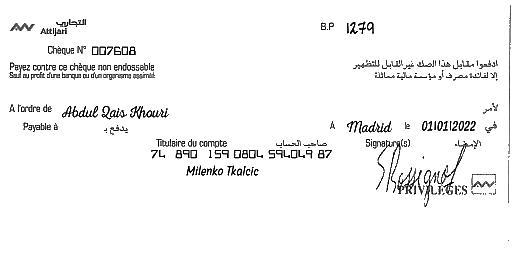 التجاري
Attijari
B.P 1279
Chèque N° 007608
Payez contre ce chèque non endossable
Sauf au profit d'une banque ou d'un organisme assimilé
ادفعوا مقابل هذا الصك غير القابل للتظهير
إلا لفائدة مصرف أو مؤسسة مالية مماثلة
A l'ordre de Abdul Qais Khouri لأمر
Payable à يدفع بـ
À Madrid le 01/01/2022 في
Titulaire du compte صاحب الحساب
Signature(s) الإمضاء
74 890 159 0804 594049 87
Milenko Tkalcic
PRIVILÈGES